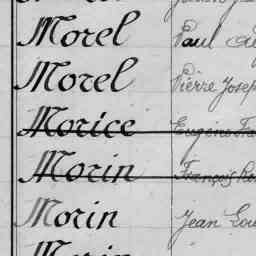 Morel Paul
Morel Pierre Josep
Morice Eugène Fra
Morin François Re
Morin Jean Lou
Morin